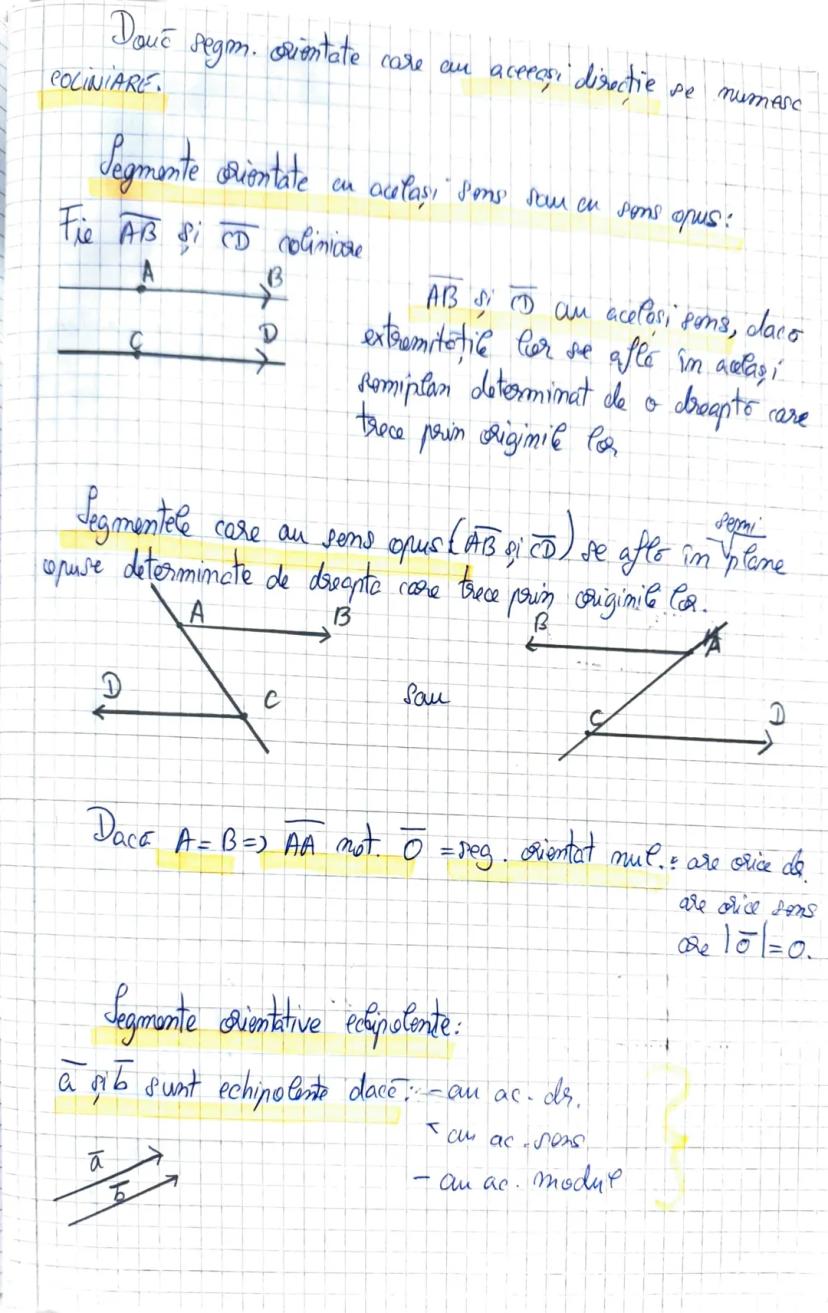 Două segm. orientate care au aceeași direcție se numesc
COLINIARE.
Segmente orientate cu același sens sau cu sens opus:
Fie A̅B̅ și C̅D̅ coliniare
A B
C D
A̅B̅ și C̅D̅ au același sens, dacă
extremitățile lor se află în același
semiplan determinat de o dreaptă care
trece prin originile lor
Segmentele care au sens opus (A̅B̅ și C̅D̅) se află în semiplane
opuse determinate de dreapta care trece prin originile lor.
A B
D C
sau
B A
C D
Dacă A = B => A̅A̅ not. O̅ = seg. orientat nul. : are orice dr.
are orice sens
are |o̅| = 0.
Segmente orientative echipolente:
a̅ și b̅ sunt echipolente dacă: - au ac. dr.
- au ac. sens
- au ac. modul
a̅
b̅